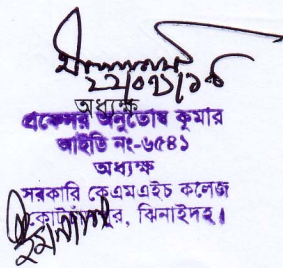 ২২/০৭/১৮
অধ্যক্ষ
প্রফেসর অনুতোষ কুমার
আইডি নং-৬৫৪১
অধ্যক্ষ
সরকারি কেএমএইচ কলেজ
কোটচাঁদপুর, ঝিনাইদহ।